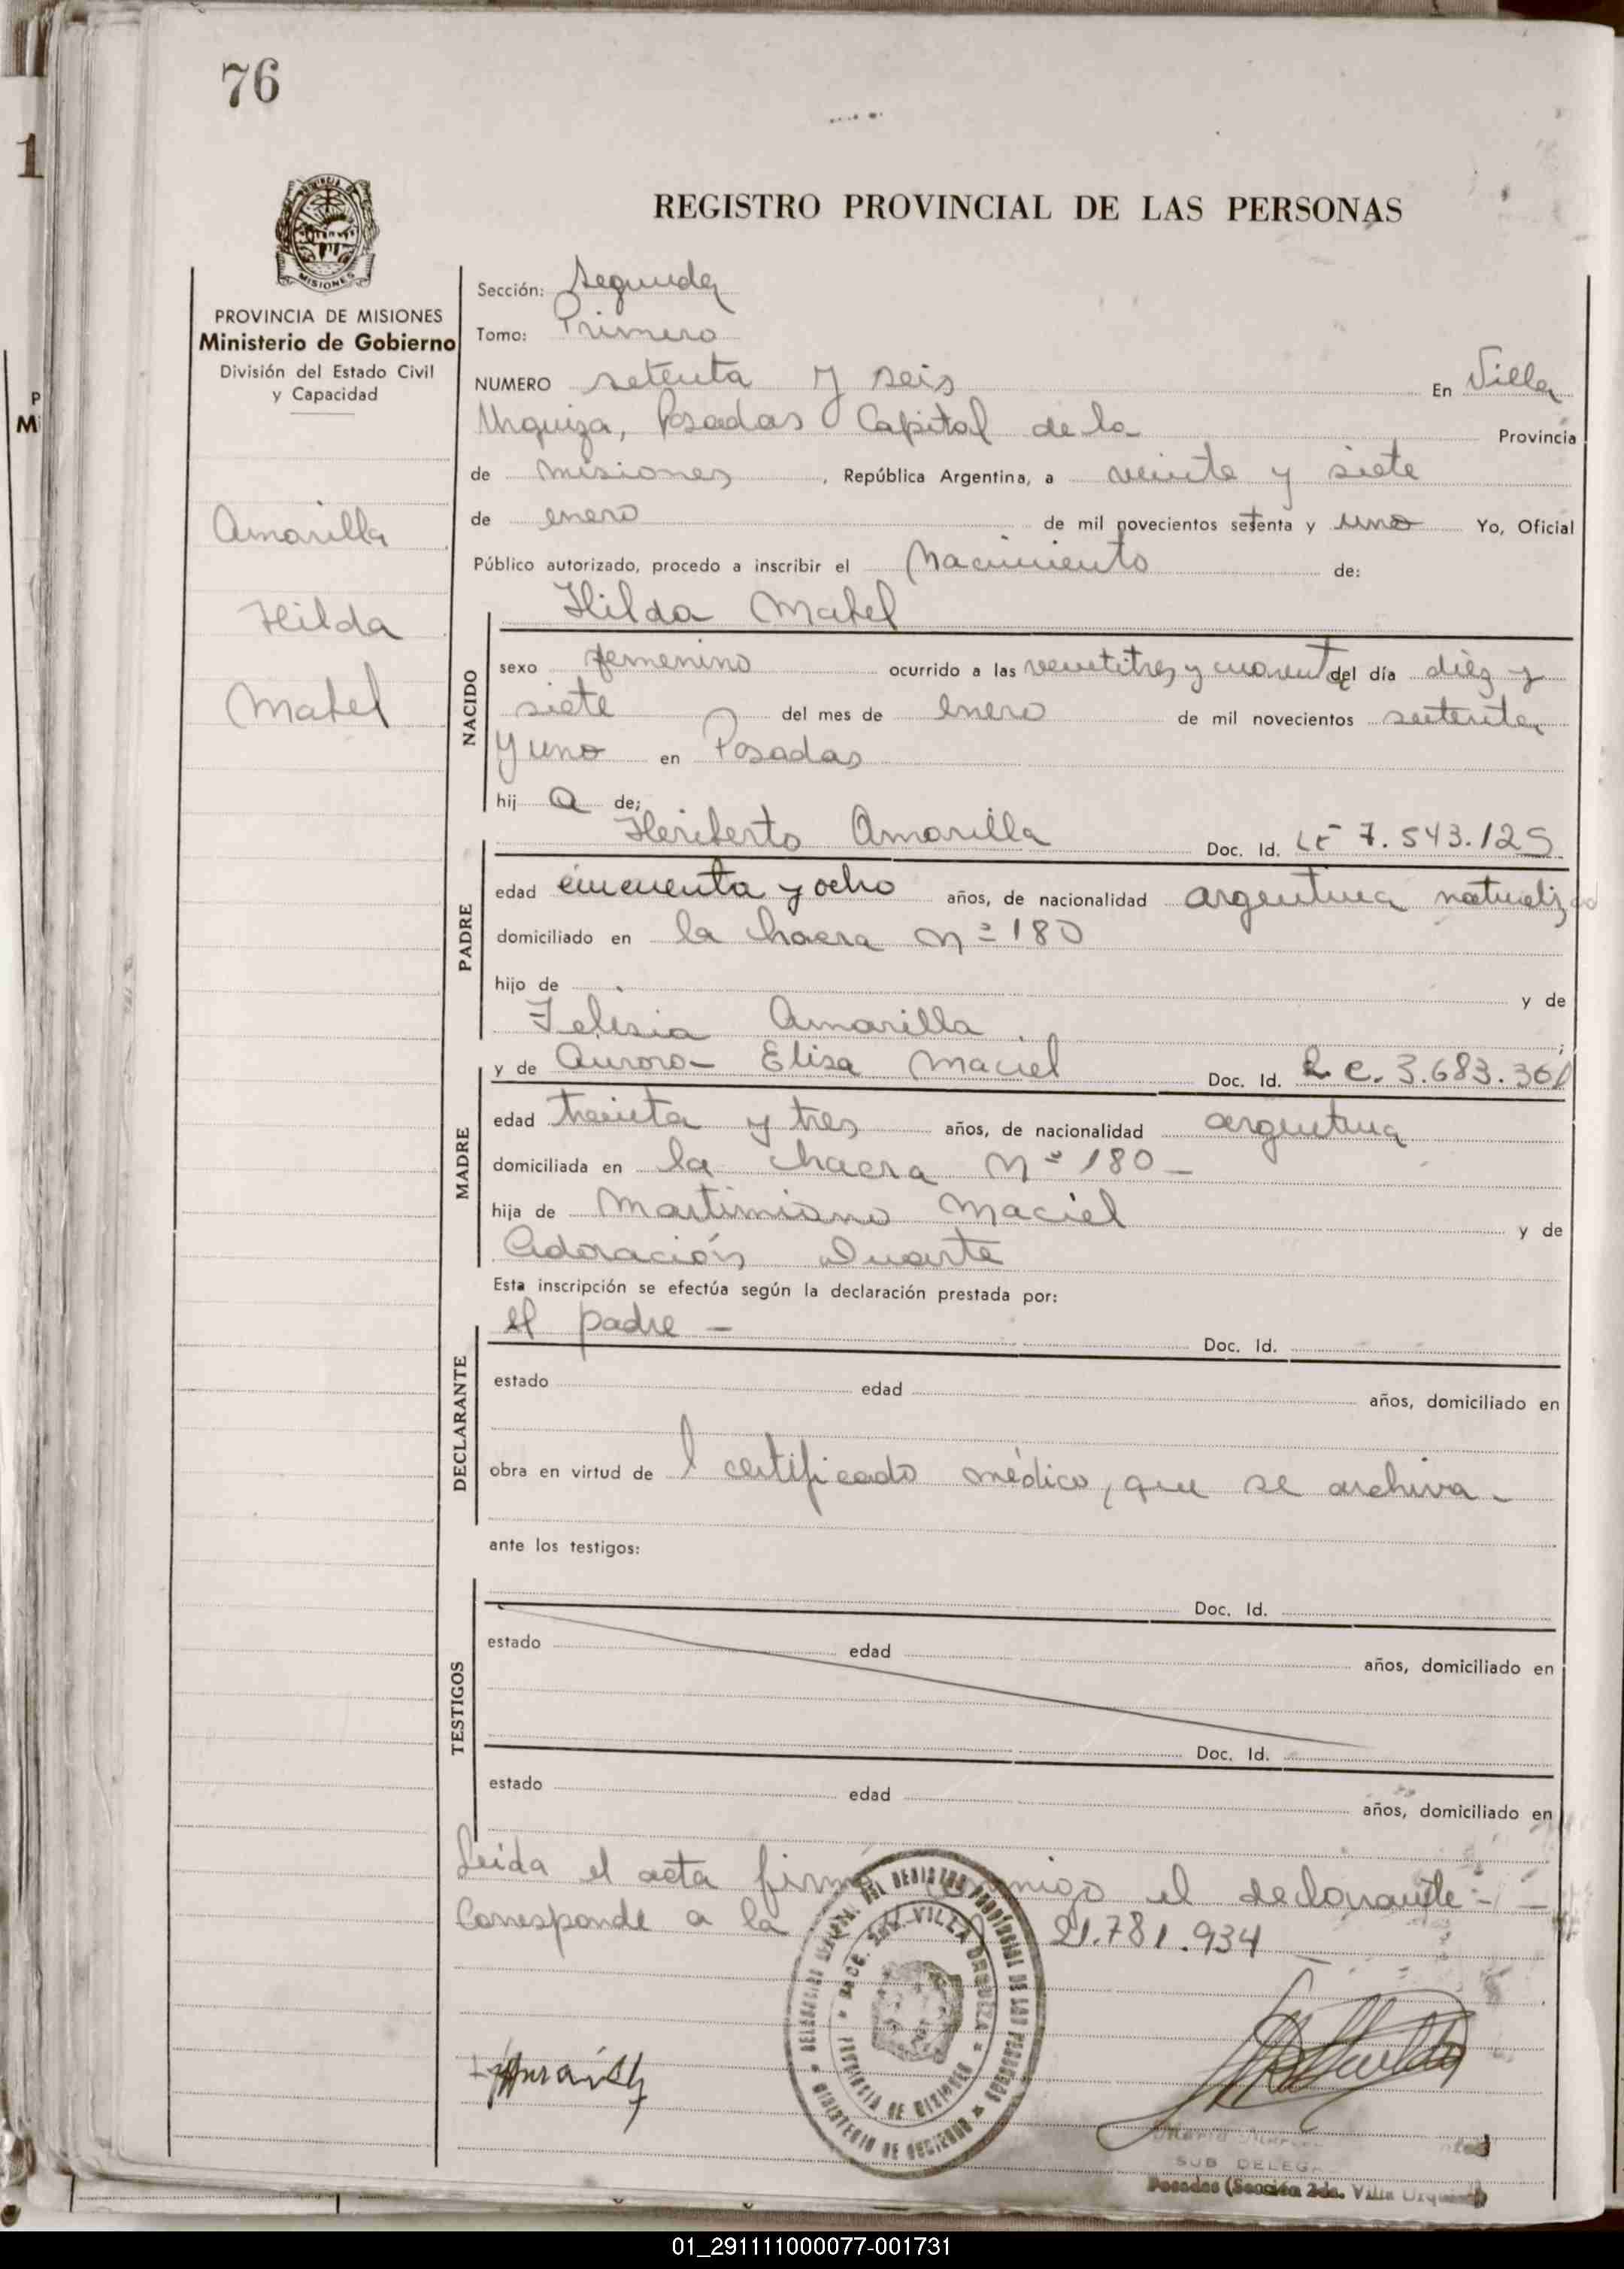 76
1
REGISTRO PROVINCIAL DE LAS PERSONAS
MISIONES
PROVINCIA DE MISIONES
Ministerio de Gobierno
División del Estado Civil
y Capacidad
P
Mi
Amarilla
Hilda
Mabel
Sección: Segunda
Tomo: Primero
NUMERO setenta y seis En Villa
Urquiza, Posadas Capital de la Provincia
de misiones, República Argentina, a veinte y siete
de enero de mil novecientos setenta y uno Yo, Oficial
Público autorizado, procedo a inscribir el Nacimiento de:
Hilda Mabel
NACIDO
sexo femenino ocurrido a las veintitres y cuarenta del día diez y
siete del mes de enero de mil novecientos setenta
y uno en Posadas
hij a de;
Heriberto Amarilla Doc. Id. LE 7.543.129
PADRE
edad cincuenta y ocho años, de nacionalidad argentina naturaliz
domiciliado en la chacra nº 180
hijo de y de
Amarilla
y de Aurora Elisa Maciel Doc. Id. L.C. 3.683.361
MADRE
edad treinta y tres años, de nacionalidad argentina
domiciliada en la chacra nº 180
hija de Martimiano Maciel y de
Adoración Duarte
Esta inscripción se efectúa según la declaración prestada por:
el padre - Doc. Id.
DECLARANTE
estado edad años, domiciliado en
obra en virtud de l certificado médico, que se archiva.
ante los testigos:
Doc. Id.
TESTIGOS
estado edad años, domiciliado en
Doc. Id.
estado edad años, domiciliado en
Leida el acta firma conmigo el declarante -
Corresponde a la 21.781.934
DELEGACION REGISTRO PROVINCIAL DE LAS PERSONAS
MINISTERIO DE GOBIERNO
VILLA URQUIZA
PROVINCIA DE MISIONES
SUB DELEG
Posadas (Sección 2da. Villa Urquiza)
01_291111000077-001731